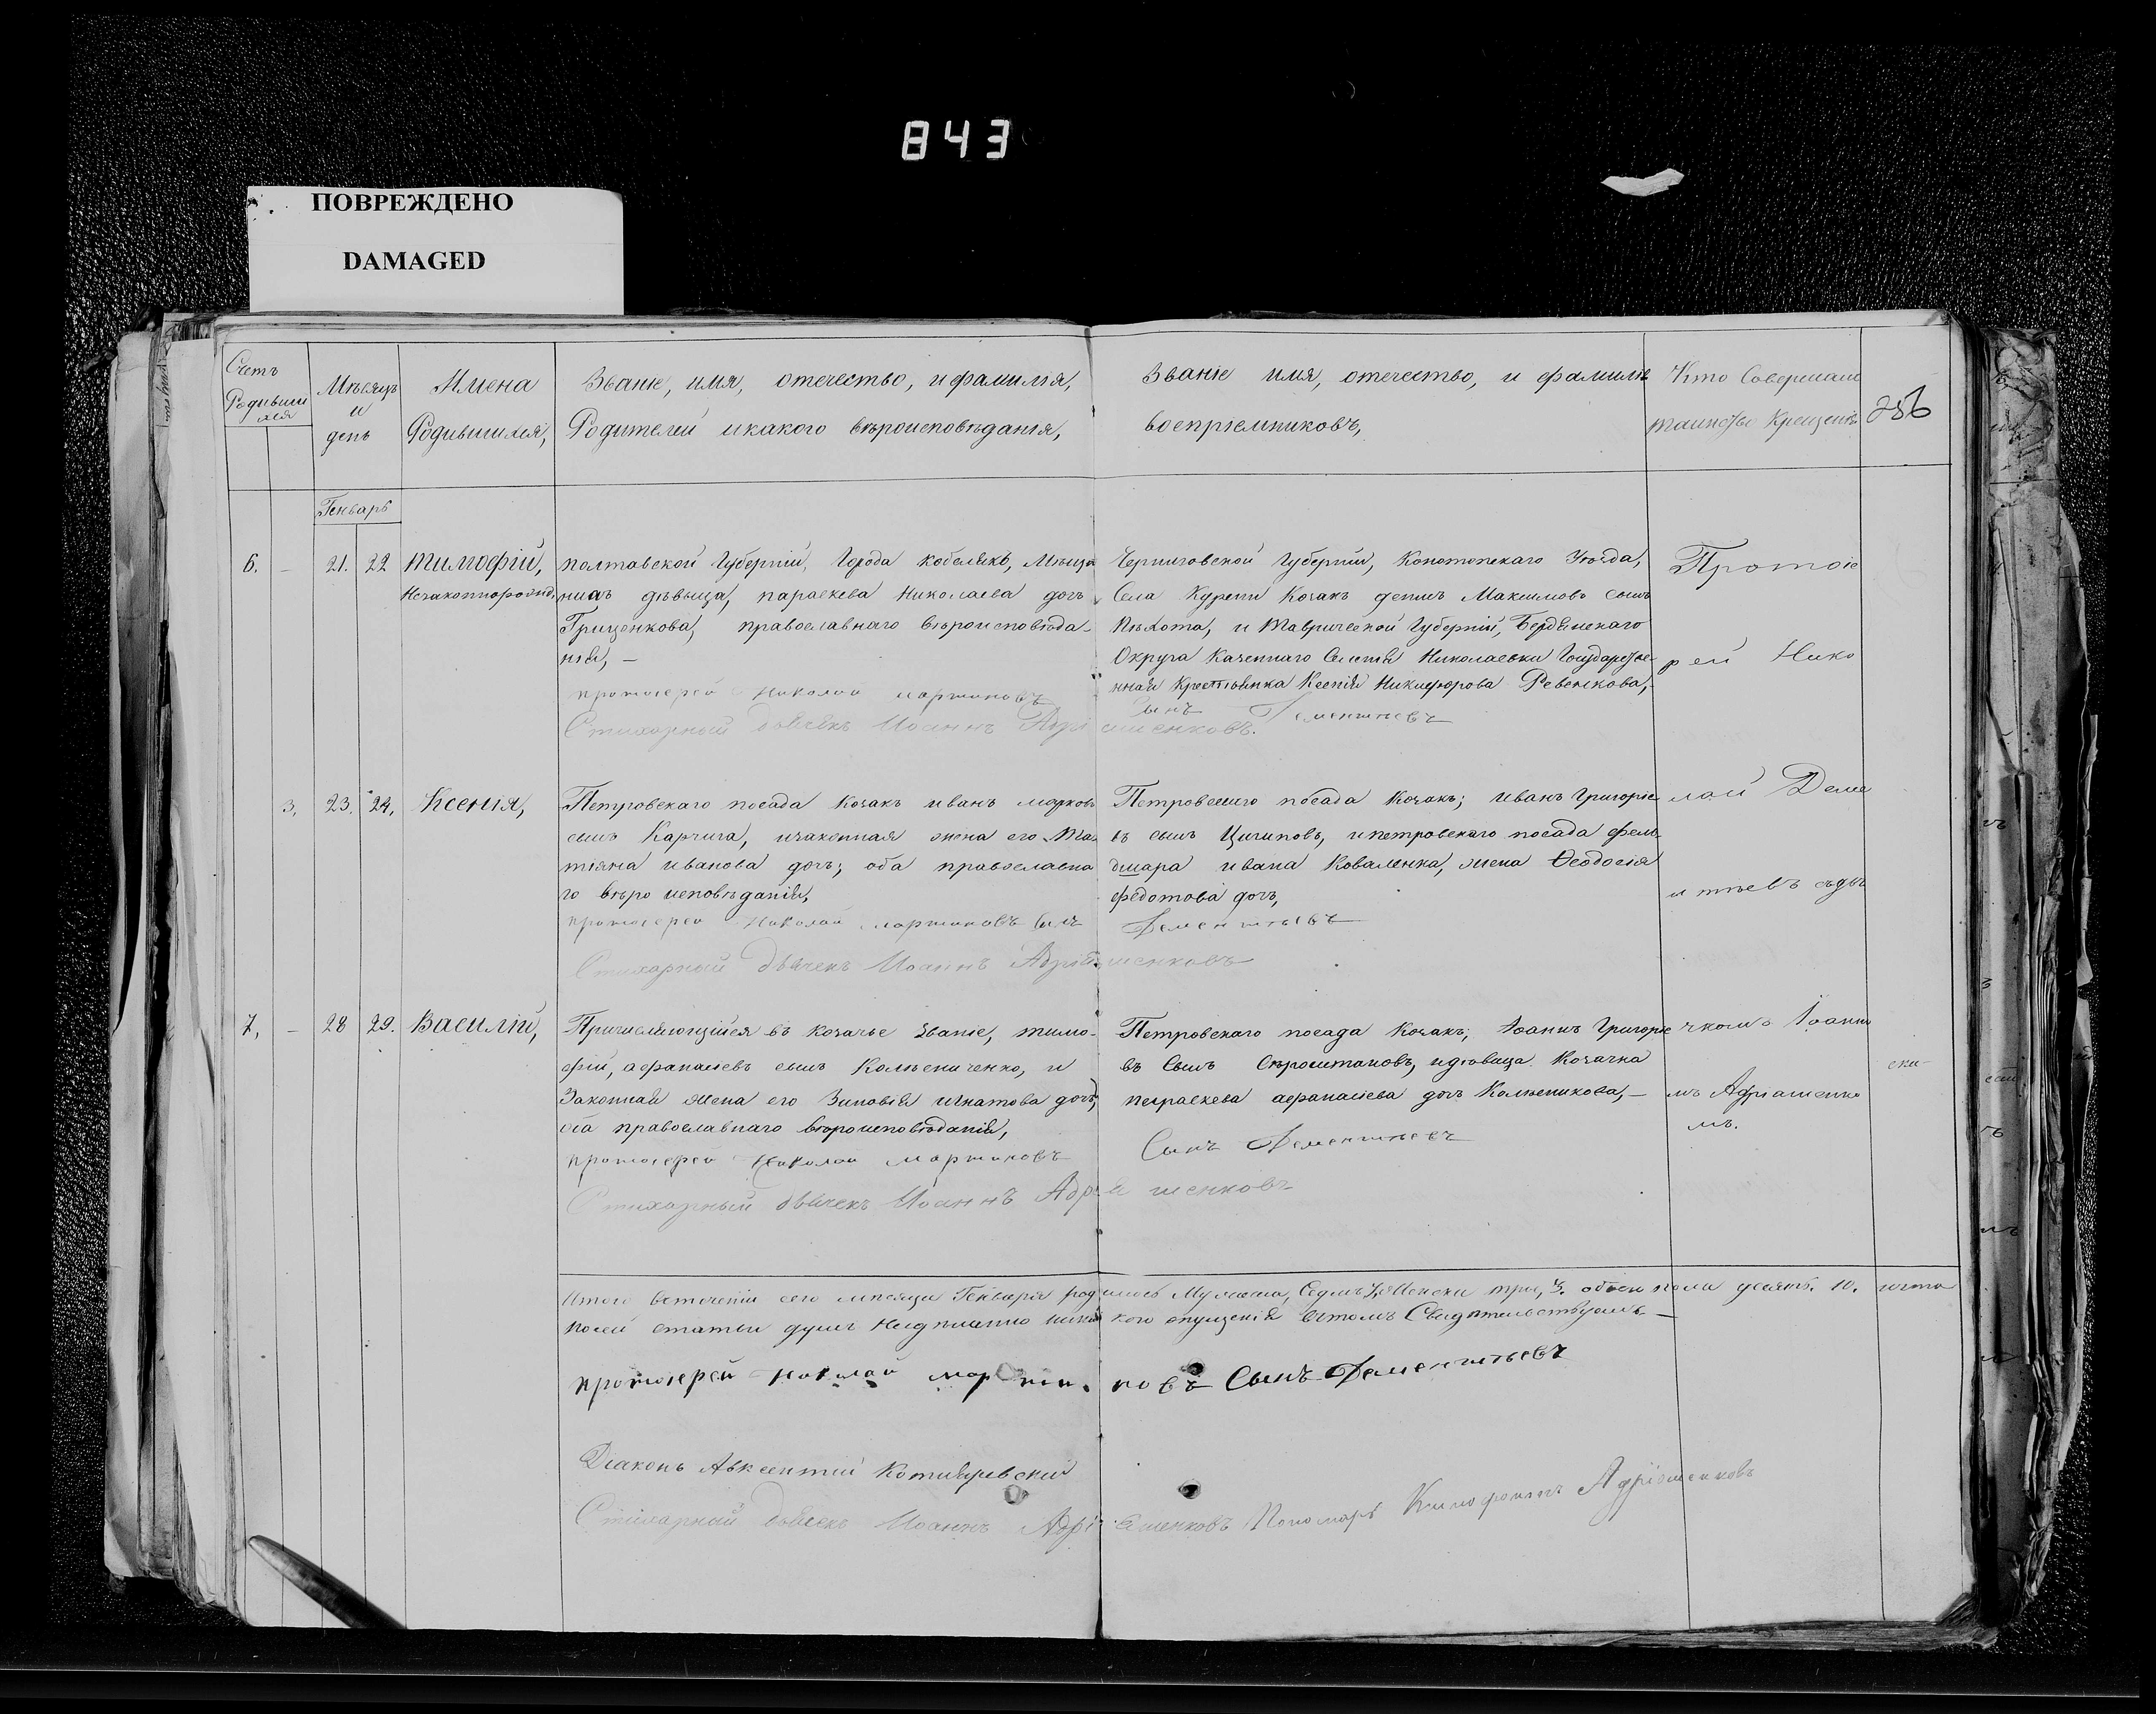 843
ПОВРЕЖДЕНО
DAMAGED
Счетъ Родившихся
Мѣсяцъ и день
Имена Родившихся,
Званіе, имя, отечество, и фамилія,
Родителей и какого вѣроисповѣданія,
Званіе имя, отечество, и фамилія
воспріемниковъ,
Кто Совершалъ
таинство Крещенія
256
Генварь
6. – 21. 22 Тимофій,
Незаконнорожд.
полтавской Губерніи, Города кобелякъ, Мѣща
нинъ дѣвыца, параскева Николаева дочь
Гриценкова, православнаго вѣроисповѣда-
нія, —
протоіерей Николай мартиновъ
Стихарный дьячекъ Иоаннъ Адріяшенковъ.
Черниговской Губерніи, Конотопскаго Уѣзда,
Села Курени Козакъ денисъ Максимовъ сынъ
Пѣхота, и Таврической Губерніи, Бердянскаго
Округа Казеннаго Селенія Николаевки Государстве-
нная Крестьянка Ксенія Никифорова Ревенкова,-
Сынъ Дементьевъ
Протоіе
рей Нико
3. 23. 24, Ксенія,
Петровскаго посада Козакъ иванъ марковъ
сынъ Карчига, изаконная жена его Та-
тіяна иванова дочь; оба православна
го вѣро исповѣданія,
протоіерей Николай мартиновъ Сынъ
Стихарный дьячекъ Иоаннъ Адріяшенковъ
Петровскаго посада Козакъ; иванъ Григоріе
въ сынъ Цигиповъ, ипетровскаго посада фель-
дшара ивана Коваленка, жена Ѳеодосія
федотова дочь,
Дементьевъ
лай Деме
нтьевъ съдья
7, – 28 29. Василій,
Причисляющійся въ козачье званіе, тимо-
фій, афанасіевъ сынъ Колѣсниченко, и
Законная жена его Зиновія игнатова дочь,
оба православнаго вѣроисповѣданія,
протоіерей Николай мартиновъ
Стихарный дьячекъ Иоаннъ Адріяшенковъ
Петровскаго посада Козакъ; Іоаннъ Григоріе
въ Сынъ Сѣроштановъ, идѣвица Козачка
параскева афанасіева дочь Колѣсникова,—
Сынъ Дементьевъ
чкомъ Іоанно
мъ Адріашенко
мъ.
Итого втеченіи сего мѣсяца Генваря родилось Мужеска, Седмь 7, Женска трое, 3. обоего пола десять. 10. ичто
посей статьи душъ Недпишенно никакого опущенія вътомъ Свидѣтельствуемъ—
протоіерей Николай мартиновъ Сынъ Дементьевъ
Діаконъ Авксентій Котляревскій
Стихарный дьячекъ Иоаннъ Адріяшенковъ Пономарь Ксенофонтъ Адріяшенковъ